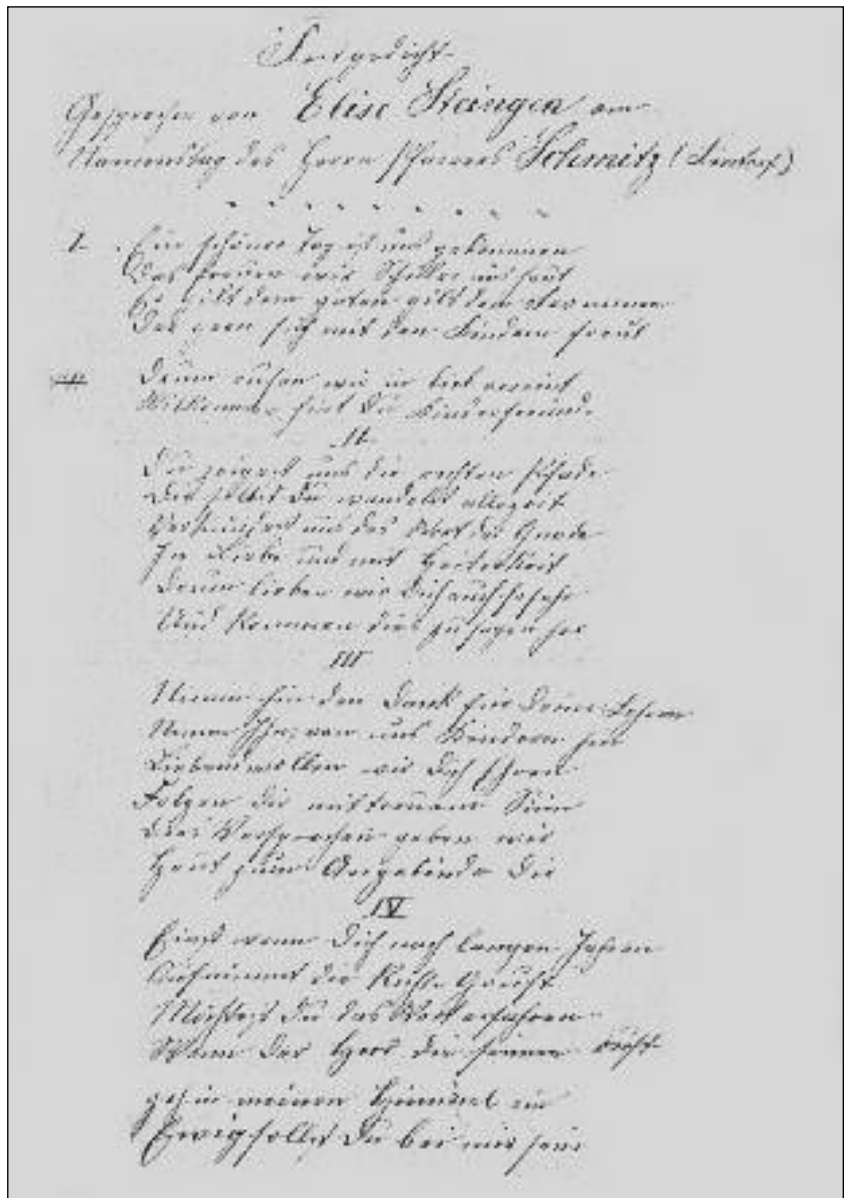 Festgedicht
Gesprochen von Elise Steingen am
Namenstag des Herrn Pfarrers Schmitz
I. Ein schöner Tag ist uns gekommen
Des freuen wir Schüler uns heut
Es gilt dem guten gilt dem
Der gern sich mit den Kindern freut
Drum rufen wir in Lieb vereint
Willkommen hier du Kinderfreund.
II.
Du zeigest uns die rechten Pfade
Die selbst du wandelst allezeit
Verkündest uns das Wort der Gnade
In Liebe und mit Heiterkeit
Drum lieben wir dich auch so sehr
Und kommen dies zu sagen her
III
Nimm hin den Dank für deine Lehren
Nimm Ihn von uns Kindern hin
Liebend wollen wir dich Ehren
Folgen dir mit treuem Sinn
Dies Versprechen geben wir
Heut zum Angebinde dir
IV
Einst wenn dich nach langen Jahren
Aufnimmt die kühle Gruft
Möchtest du das Wort erfahren
Wenn der Herr dir seinen ruft
geh in meinen Himmel ein
Ewig sollst du bei mir sein